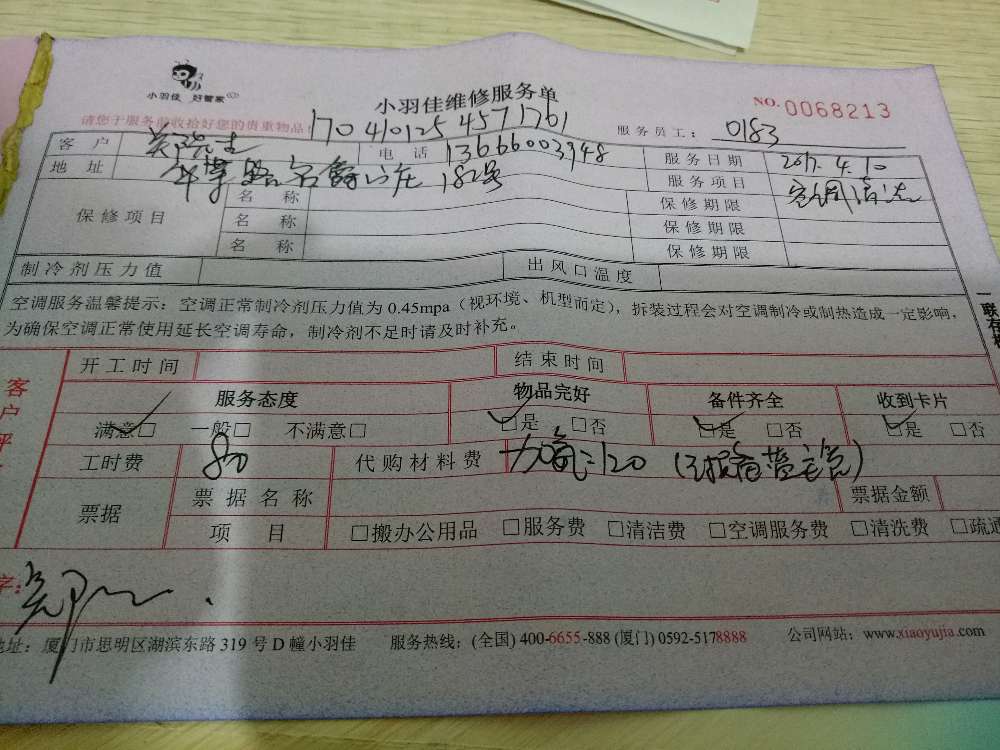 小羽佳 好管家
小羽佳维修服务单
NO.0068213
请您于服务前收拾好您的贵重物品!
170 410125 4571761
服务员工: 0183
客户 郑先生 电话 13666003948 服务日期 2017.4.10
地址 182号 服务项目 空调清洗
保修项目 名称 保修期限
名称 保修期限
名称 保修期限
制冷剂压力值 出风口温度
空调服务温馨提示：空调正常制冷剂压力值为0.45mpa（视环境、机型而定），拆装过程会对空调制冷或制热造成一定影响，
为确保空调正常使用延长空调寿命，制冷剂不足时请及时补充。
一联存根
客户评
开工时间 结束时间
服务态度 物品完好 备件齐全 收到卡片
满意□ 一般□ 不满意□ □是 □否 □是 □否 □是 □否
工时费 80 代购材料费 加氟=120
票据 票据名称 票据金额
项目 □搬办公用品 □服务费 □清洁费 □空调服务费 □清洗费 □疏通
字: 郑
地址: 厦门市思明区湖滨东路 319 号 D 幢小羽佳 服务热线: (全国) 400-6655-888 (厦门) 0592-5178888 公司网站: www.xiaoyujia.com